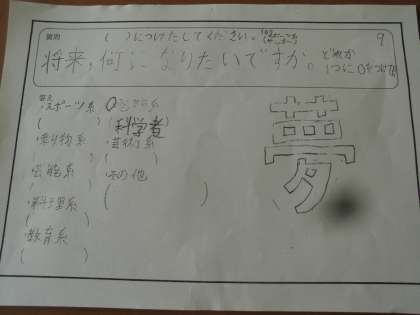 質問
( )につけたしてください。
9
将来、何になりたいですか。
どれか
1つに○をつけてね
答え
・スポーツ系
( )
・乗り物系
( )
・芸能系
( )
・料理系
( )
・教育系
( )
(科学者)
・芸術系
( )
・その他
( )
夢